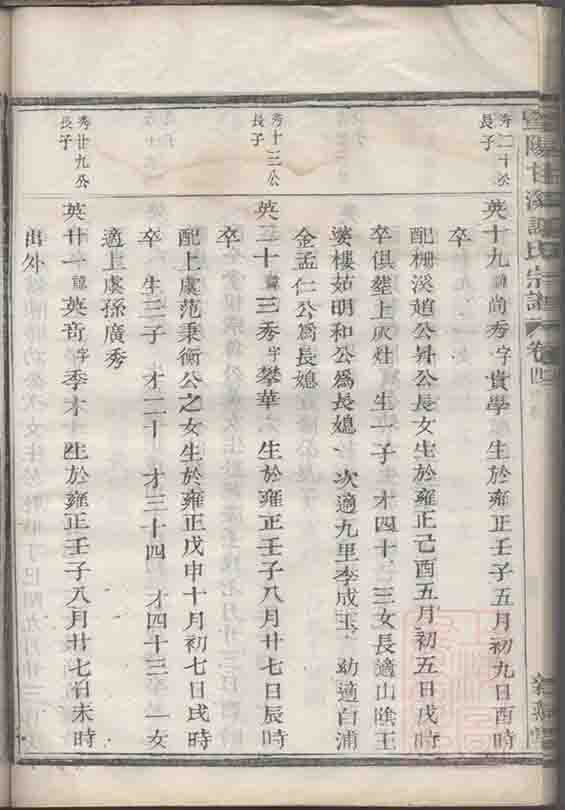 暨陽甘溪謝氏宗譜 卷四
秀二十公
長子
英十九諱尚秀字貴學 生於雍正壬子五月初九日酉時
卒
配柵溪趙公昇公長女生於雍正己酉五月初五日戌時
卒俱塟上灰灶 生一子 才四十 三女長適山陰王
婆樓姑明和公爲長媳 次適九里李成玉 幼適白浦
金孟仁公爲長媳
秀十三公
長子
英二十諱三秀字攀華 生於雍正壬子八月廿七日辰時
卒
配上虞范秉衡公之女生於雍正戊申十月初七日戌時
卒 生三子 才二十 才三十四 才四十三 一女
適上虞孫廣秀
秀廿九公
長子
英廿一諱英音字季才 生於雍正壬子八月廿七日未時
出外